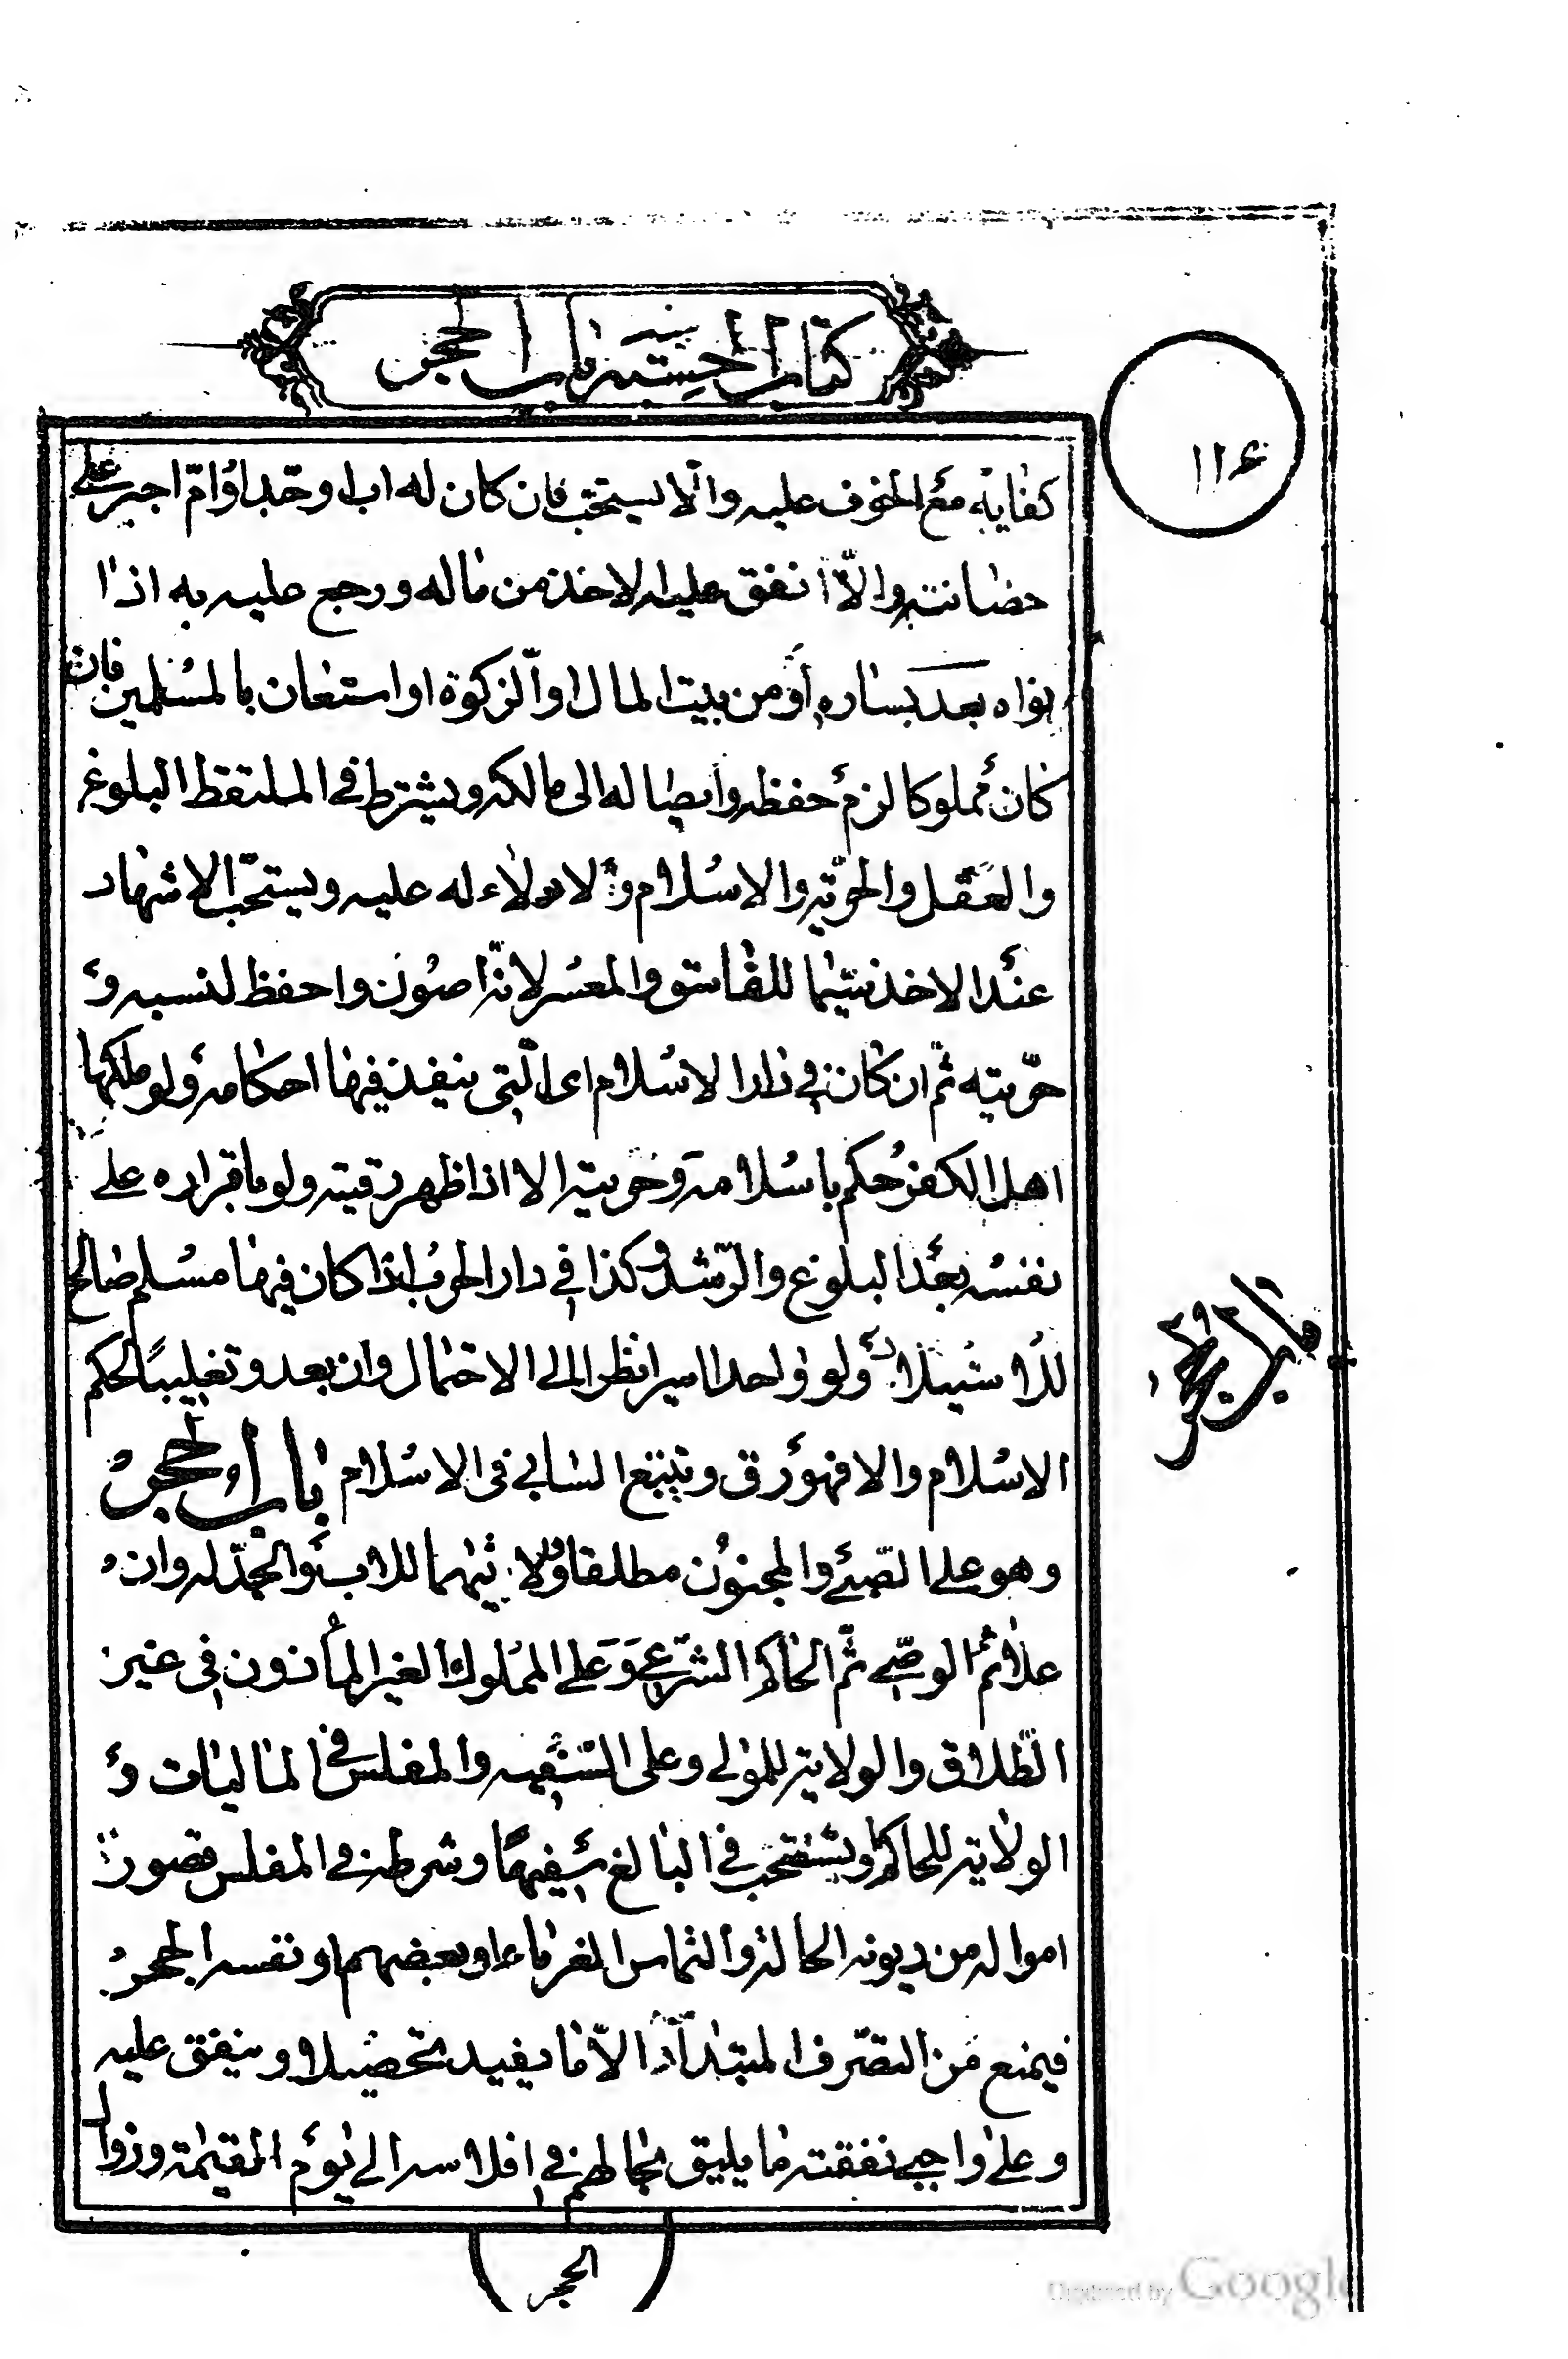 كتاب الحسبة باب الحجر
١١٤
كفاية مع الخوف عليه والّا يستحبّ فان كان له اب او جدّ او امّ اجبر على
حضانته والّا انفق عليه الاخذ من ماله ورجع عليه به اذا
نواه بعد يساره او من بيت المال او الزكوة او استعان بالمسلمين فان
كان مملوكا لزم حفظه وايصاله الى مالكه ويشترط في الملتقط البلوغ
والعقل والحرّية والاسلام ولا ولاء له عليه ويستحبّ الاشهاد
عند الاخذ سيّما للفاسق والمعسر لانّه اصون واحفظ لنسبه و
حرّيته ثمّ ان كان في دار الاسلام اى الّتى ينفذ فيها احكامه ولو ملكها
اهل الكفر حكم باسلامه وحريته الا اذا ظهر رقيته ولو باقراره على
نفسه بعد البلوغ والرّشد وكذا في دار الحرب اذا كان فيها مسلم صالح
للاستيلاد ولو واحدا اسيرا نظرا الى الاحتمال وان بعد وتغليبًا لحكم
الاسلام والا فهو رق ويتبع السابي فى الاسلام باب الحجر
وهو على الصّبي والمجنون مطلقا ولا يتهما للاب والجدّ له وان
علا ثم الوصّي ثمّ الحاكم الشّرعي وعلى المملوك الغير المأذون في غير
الطّلاق والولاية للمولى وعلى السّفيه والمفلس في الماليات و
الولاية للحاكم ويستصحب في البالغ سفيهًا وشرطه في المفلس قصور
امواله من ديونه الحالة والتماس الغرماء او بعضهم او نفسه الحجر
فيمنع من التصّرف المبتدأ الّا ما يفيد تحصيلا وينفق عليه
وعلى واجبي نفقته ما يليق بحالهم في افلاسه الى يوم القيمة وزوال
باب الحجر
الحجر
Digitized by Google